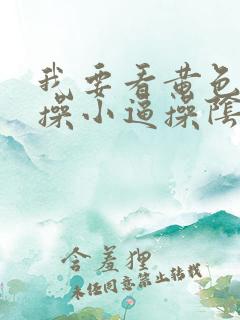 我要看黄色
操小逼操陰
含羞狸
未经同意禁止转载